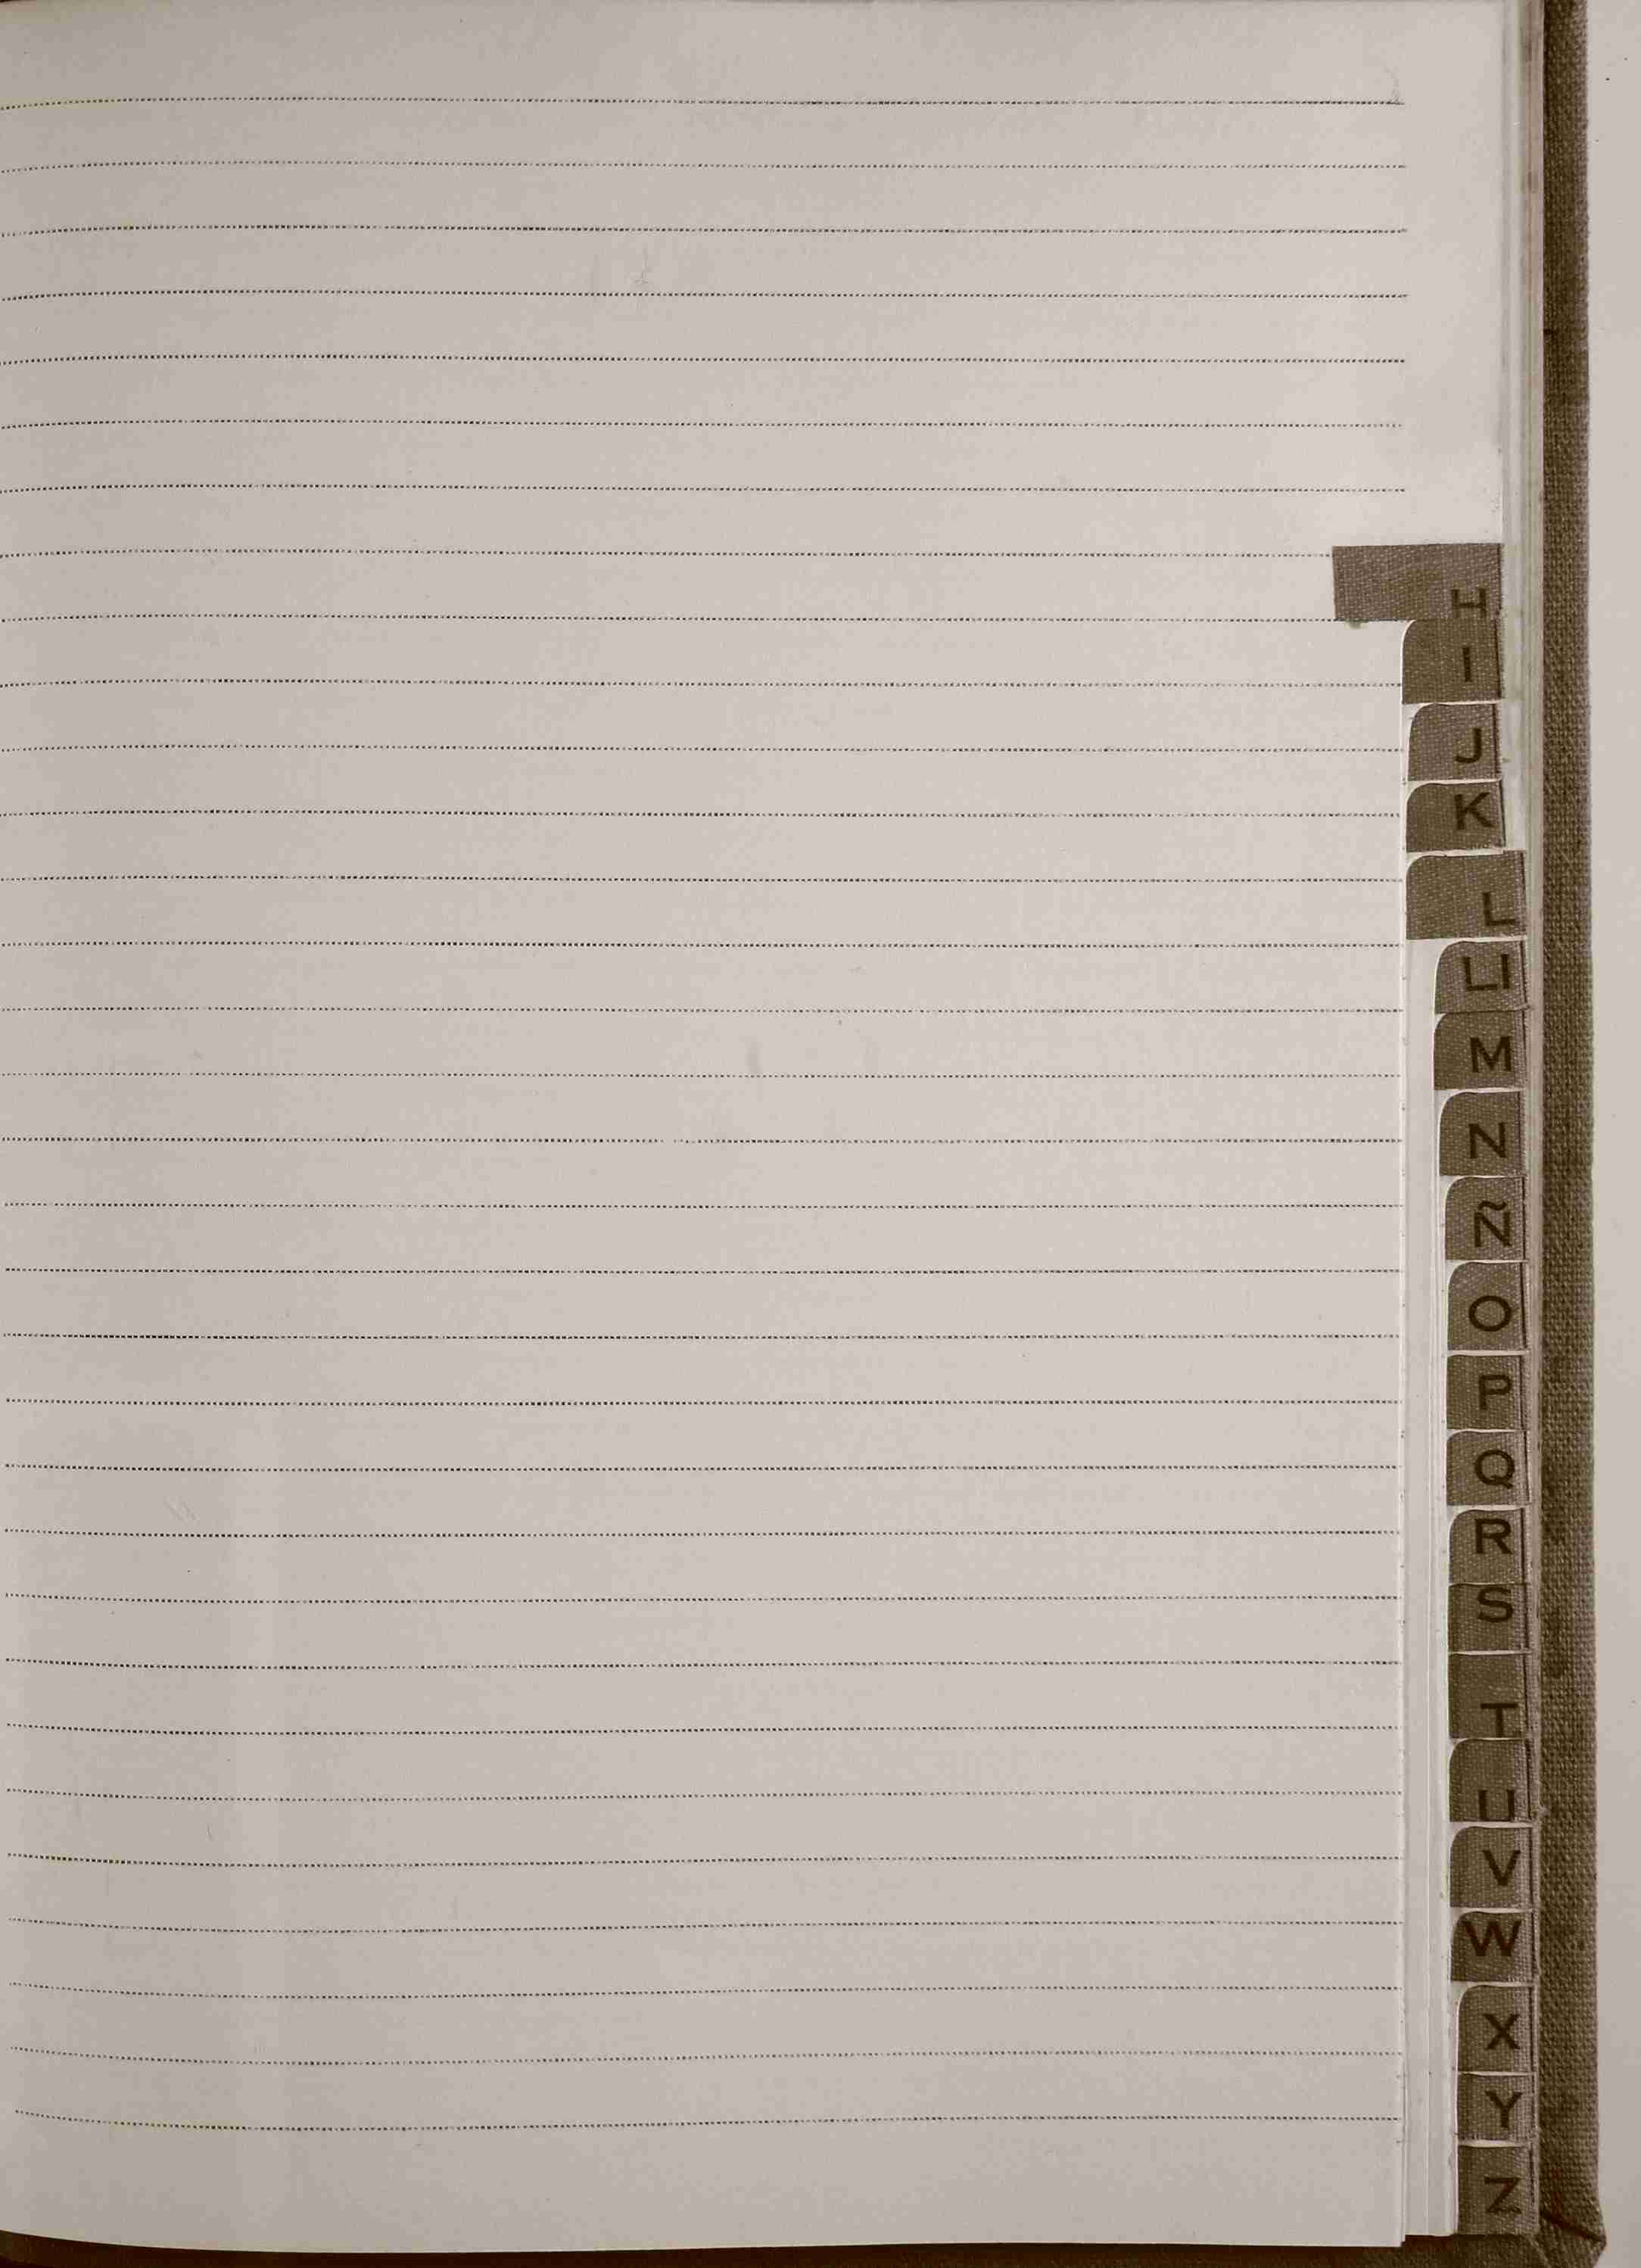 H
I
J
K
L
Ll
M
N
Ñ
O
P
Q
R
S
T
U
V
W
X
Y
Z